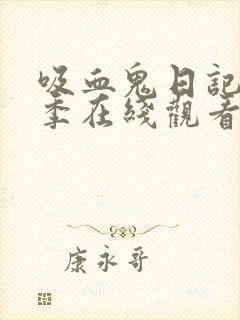 吸血鬼日記
季在綫觀看
康永哥